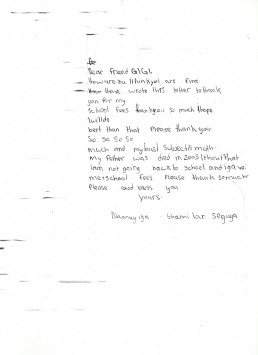 Dear Friend GIGI
How are you I think you are fine
I have wrote this letter to thank
you for my
school fees thank you so much I hope
I will do
bert than that Please thank you
So So So So
much and my best Subect is math
My Father was died in 2003 I thout that
I am not going back to school and I gave
me school fees Please thank so much
Please God bless you
yours.
Namuyiga Shamilar Seguya